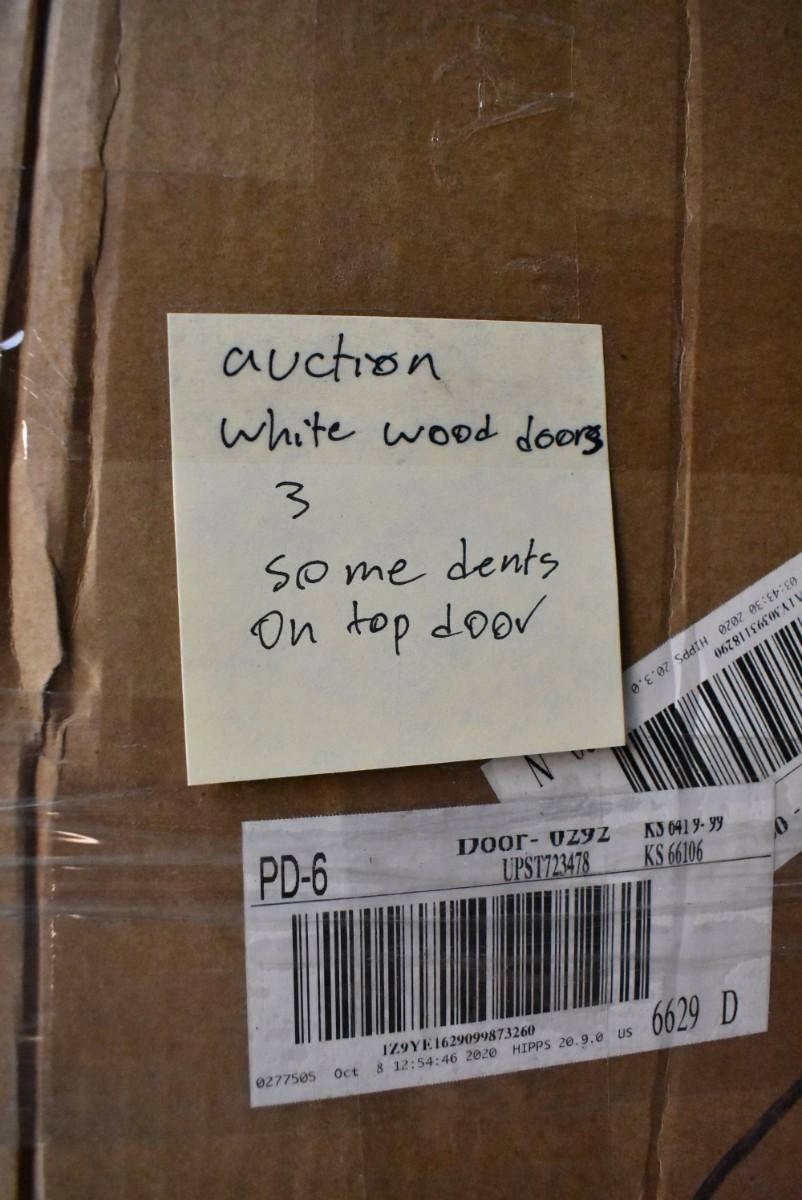 auction
white wood doors
3
some dents
on top door
03:43:30 2020 HIPPS 20.3.0
N
PD-6
Door- 0292
KS 641 9- 99
UPST723478
KS 66106
1Z9YE1629099873260
6629 D
0277505 Oct 8 12:54:46 2020 HIPPS 20.9.0 US